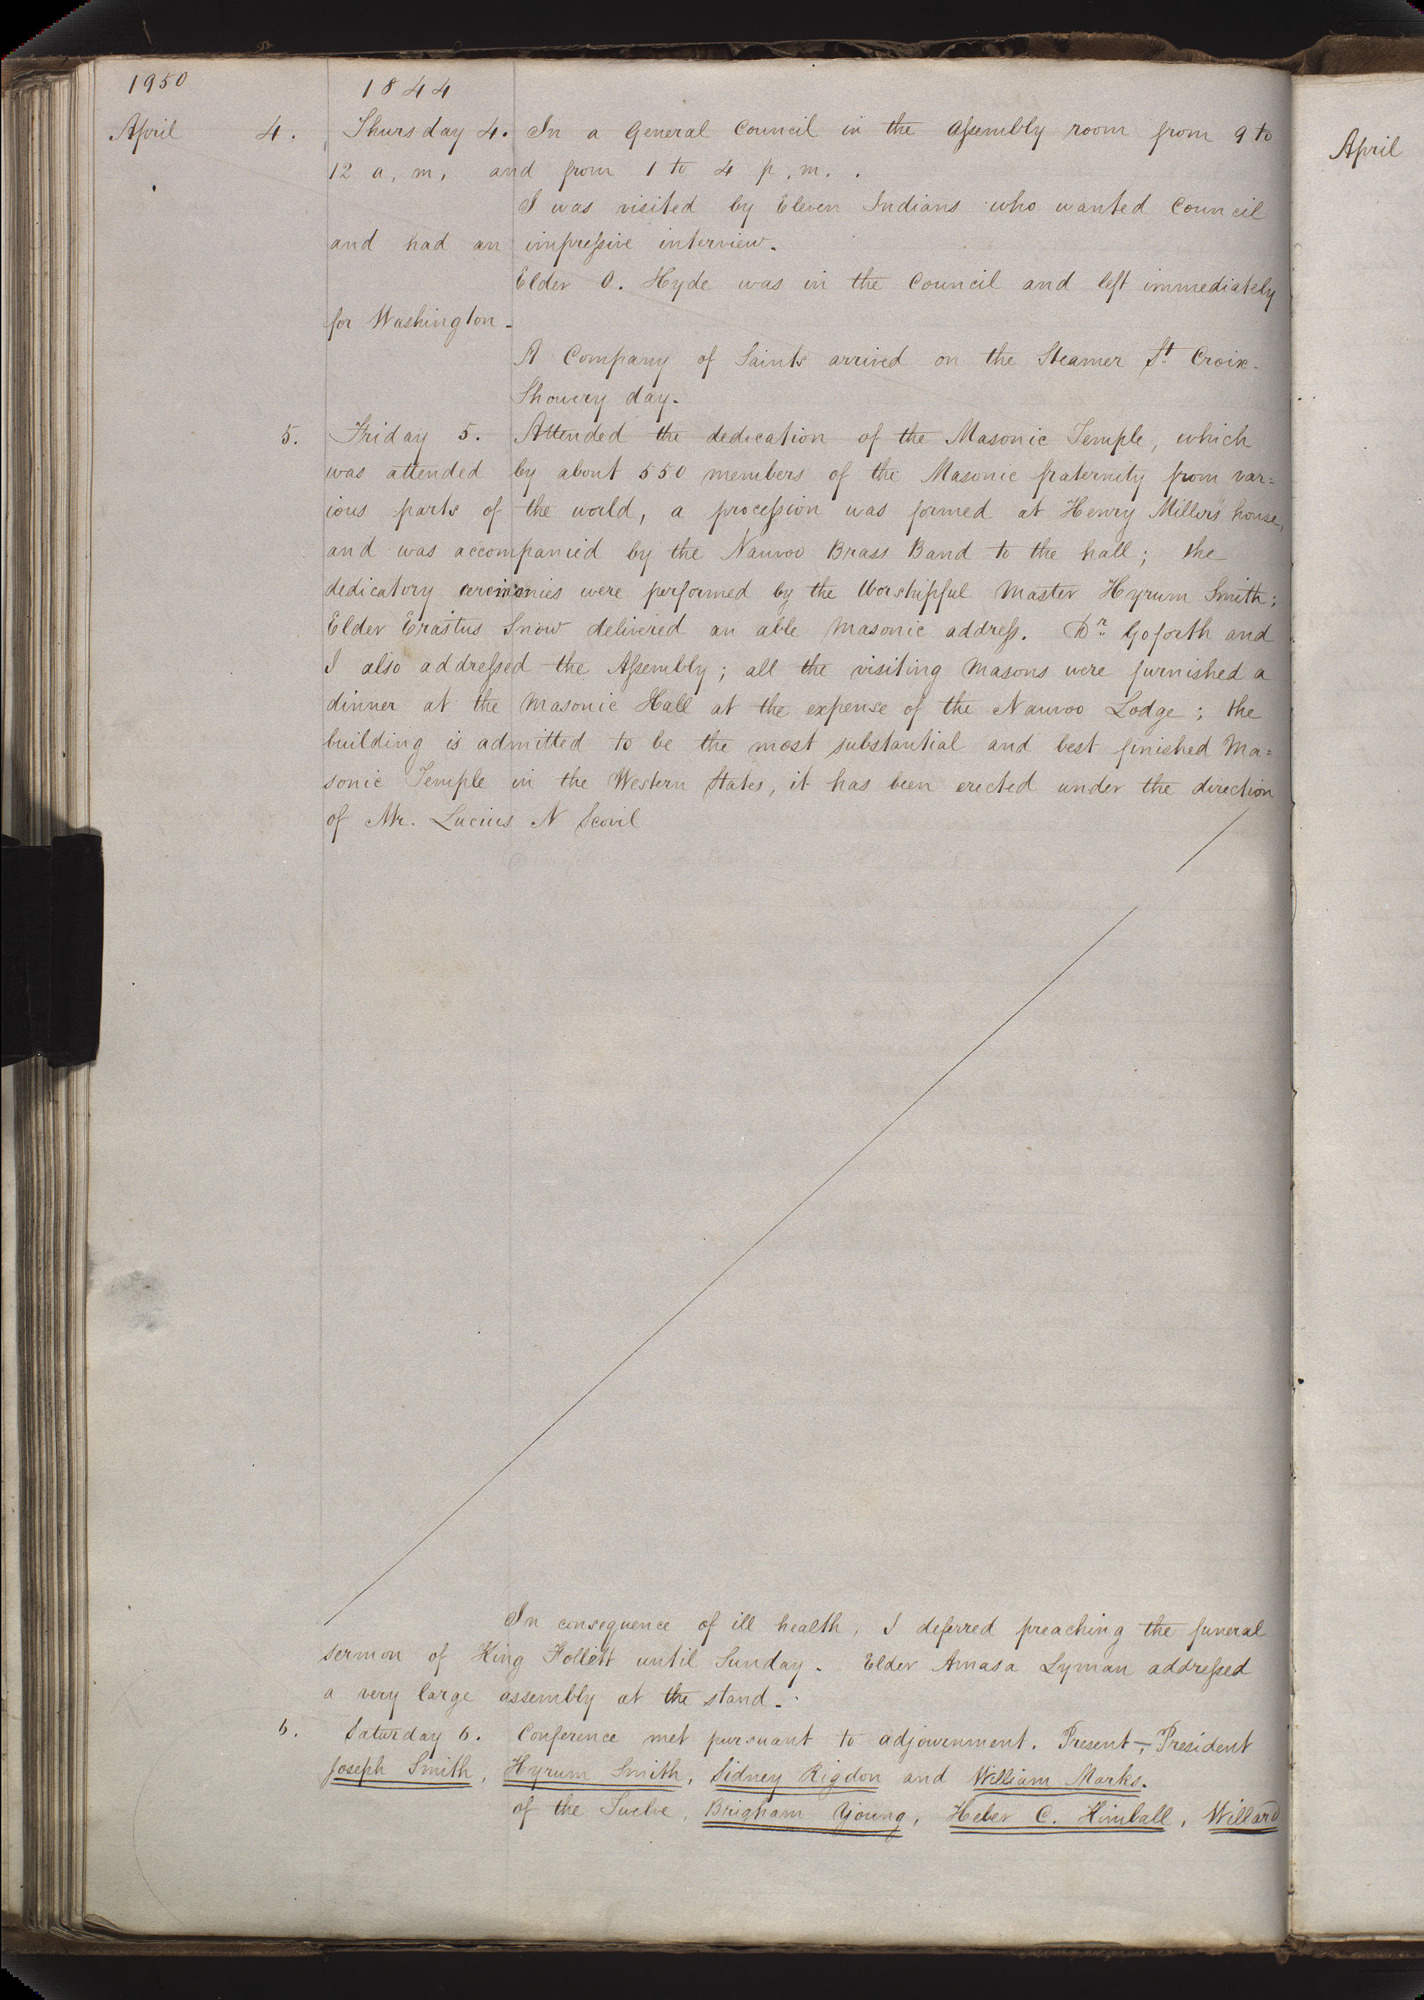 1950 1844
April 4. Thursday 4. In a General Council in the Assembly room from 9 to
12 a. m. and from 1 to 4 p. m. .
I was visited by Eleven Indians who wanted Council
and had an impressive interview.
Elder O. Hyde was in the Council and left immediately
for Washington.
A Company of Saints arrived on the Steamer St. Croix.
Showery day.
5. Friday 5. Attended the dedication of the Masonic Temple, which
was attended by about 550 members of the Masonic fraternity from var=
ious parts of the world, a procession was formed at Henry Miller's house,
and was accompanied by the Nauvoo Brass Band to the hall; the
dedicatory ceremonies were performed by the Worshipful Master Hyrum Smith;
Elder Erastus Snow delivered an able Masonic address. Dr. Goforth and
I also addressed the Assembly; all the visiting Masons were furnished a
dinner at the Masonic Hall at the expense of the Nauvoo Lodge; the
building is admitted to be the most substantial and best finished Ma=
sonic Temple in the Western States, it has been erected under the direction
of Mr. Lucius N Scovil
In consequence of ill health, I deferred preaching the funeral
sermon of King Follett until Sunday. Elder Amasa Lyman addressed
a very large assembly at the stand.
6. Saturday 6. Conference met pursuant to adjournment. Present—, President
Joseph Smith, Hyrum Smith, Sidney Rigdon and William Marks.
of the Twelve, Brigham Young, Heber C. Kimball, Willard
April